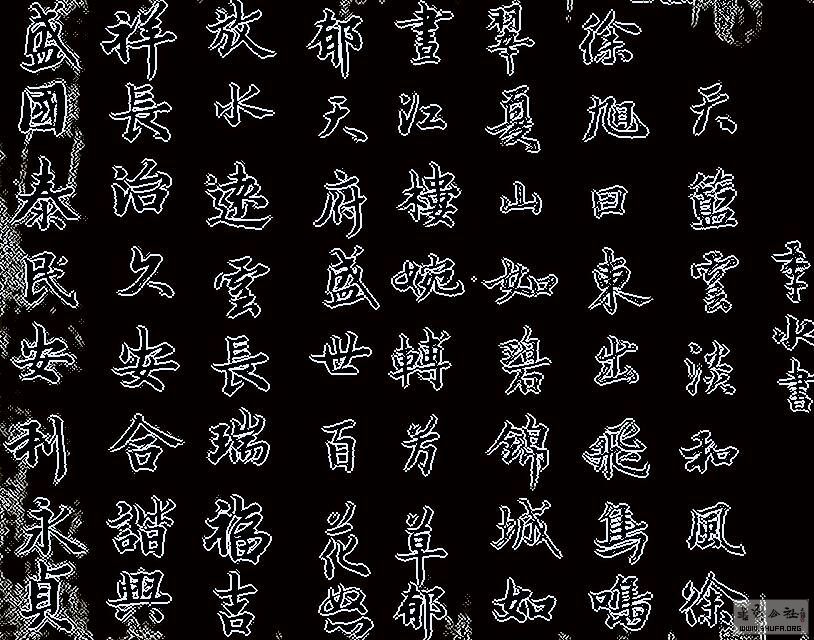 季水書
天籃雲淡和風徐
徐旭日東出飛鳥鳴
翠夏山如碧錦城如
畫江樓婉轉芳草郁
郁天府盛世百花怒
放水遠雲長瑞福吉
祥長治久安合諧興
盛國泰民安利永貞
WWW.SHUFA.ORG